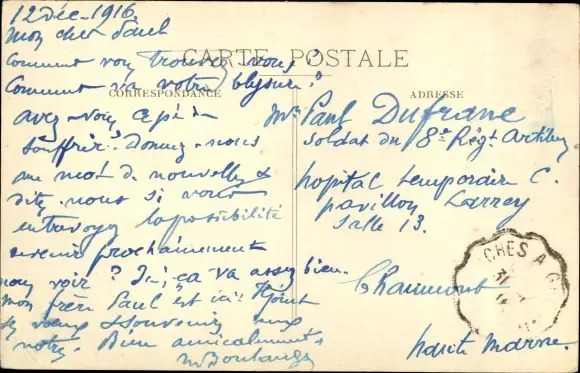 12 Déc. 1916.
Mon cher Paul
CARTE POSTALE
Comment vous trouvez vous?
Comment va votre blessure?
CORRESPONDANCE
ADRESSE
avez-vous de
souffrir? Donnez-nous
un mot de nouvelles &
dites-nous si vous
entrevoyez la possibilité
revenir prochainement
nous voir? Ici, ça va assez bien.
mon frère Paul est ici! Il joint
ses vœux & souvenirs aux
notres. Bien amicalement
M Boulanger
Mr Paul Dufrane
Soldat du 8e Régt Artillerie
hopital temporaire C.
pavillon Larrey
Salle 13.
Chaumont
haute Marne.
CHES A G